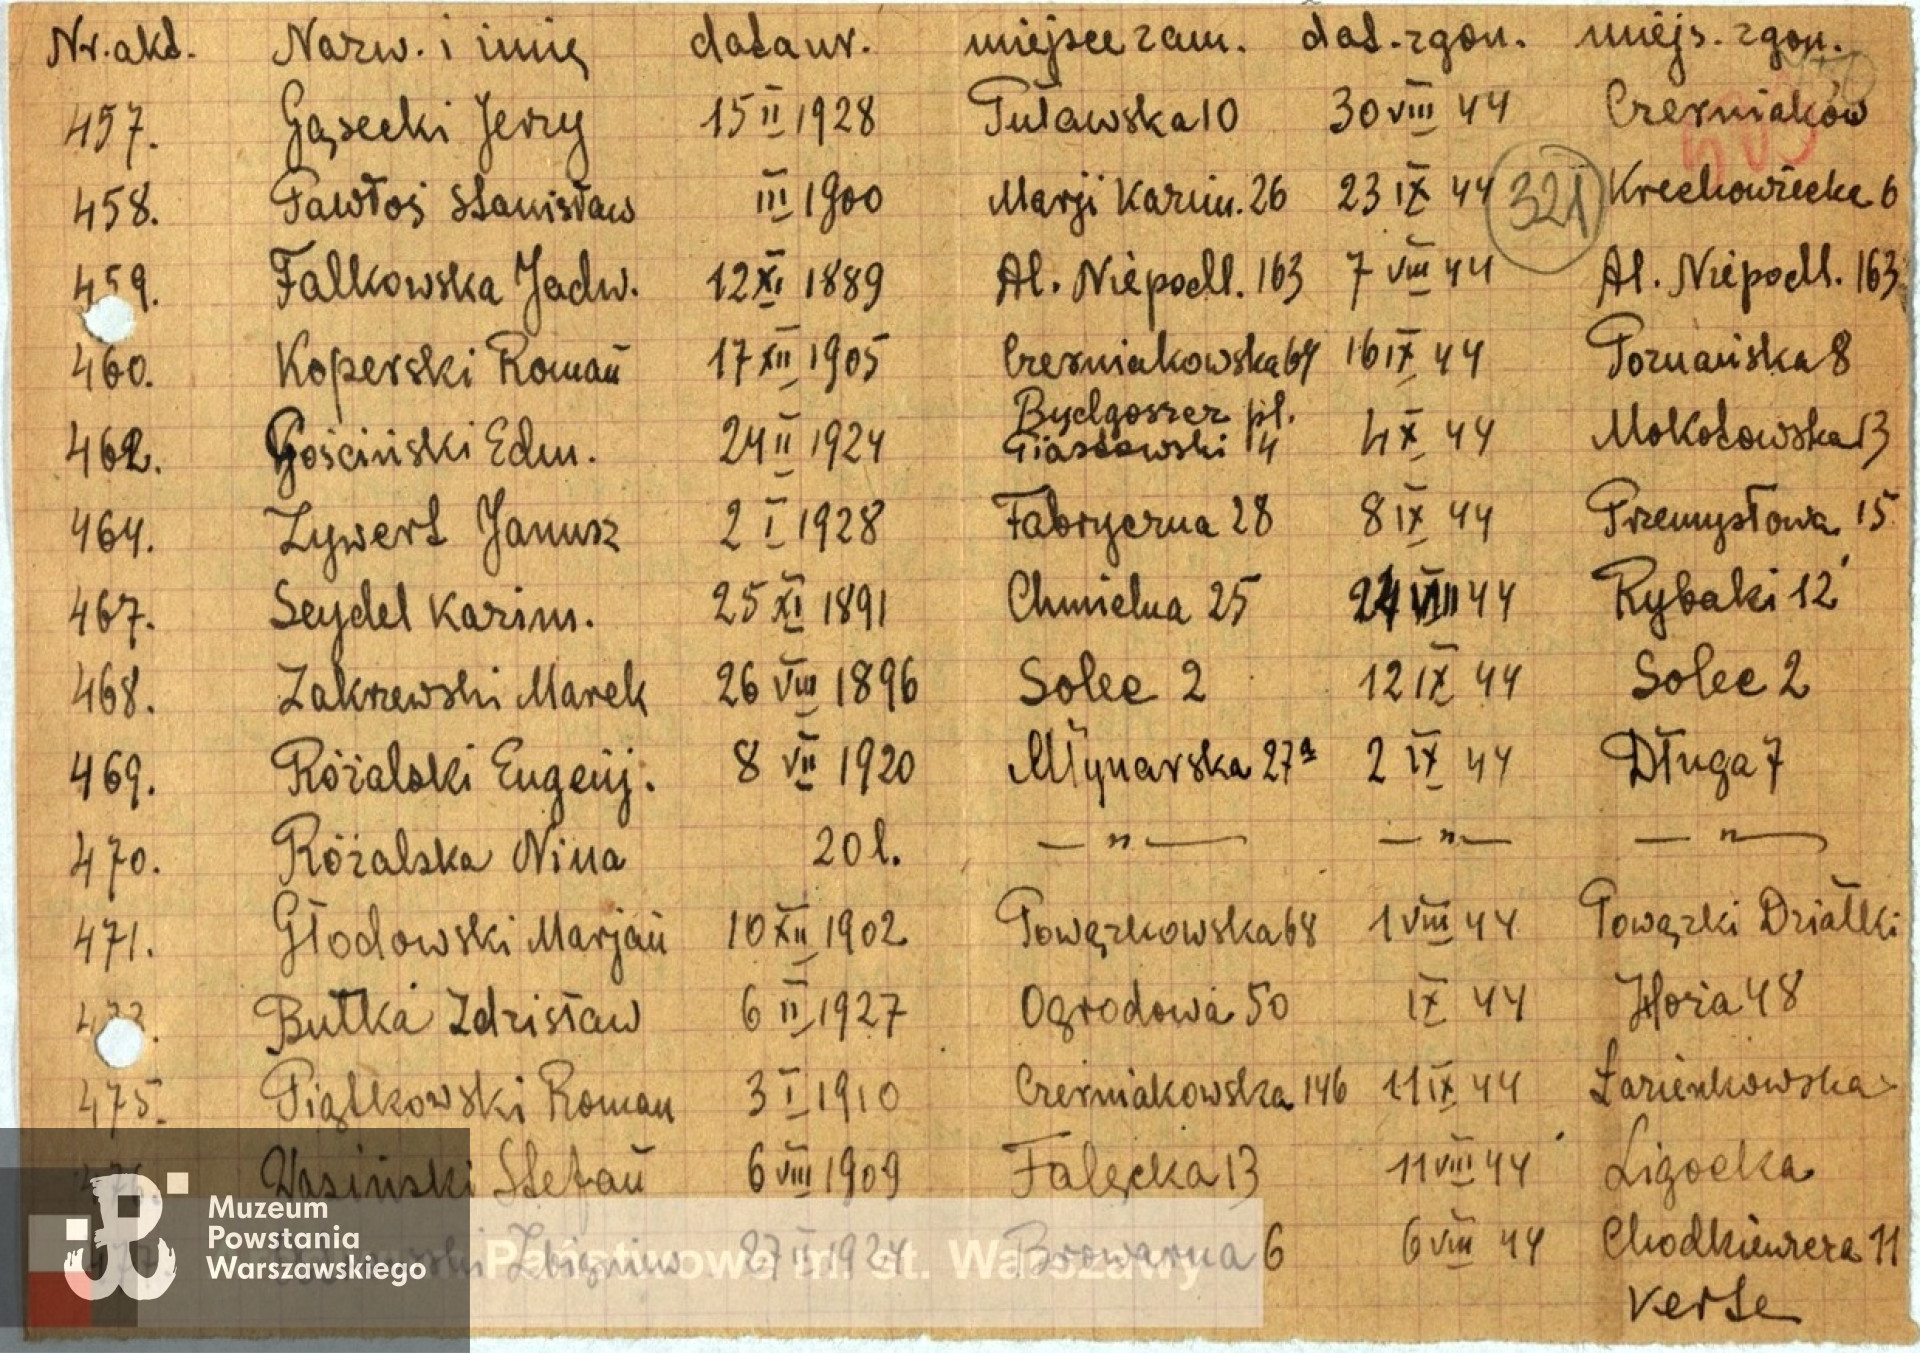 Nr. akt. Nazw. i imię data ur. miejsce zam. dat. zgon. miejs. zgon.
457. Gąsecki Jerzy 15 II 1928 Puławska 10 30 VIII 44 Czerniaków
458. Pawłoś Stanisław III 1900 Marji Kazim. 26 23 IX 44 321 Krechowiecka 6
459. Falkowska Jadw. 12 XI 1889 Al. Niepodl. 163 7 VIII 44 Al. Niepodl. 163
460. Koperski Roman 17 XII 1905 Czerniakowska 64 16 IX 44 Poznańska 8
Bydgoszcz pl.
462. Gościński Edm. 24 II 1924 Piastowski 14 4 X 44 Mokotowska 13
464. Zywert Janusz 2 I 1928 Fabryczna 28 8 IX 44 Przemysłowa 15
467. Seydel Kazim. 25 XI 1891 Chmielna 25 24 VIII 44 Rybaki 12
468. Zakrzewski Marek 26 VIII 1896 Solec 2 12 IX 44 Solec 2
469. Różalski Eugenj. 8 VII 1920 Młynarska 27a 2 IX 44 Długa 7
470. Różalska Nina 20 l. — „ — — „ — — „ —
471. Głodowski Marjan 10 XII 1902 Powązkowska 68 1 VIII 44 Powązki Działki
Butka Zdzisław 6 II 1927 Ogrodowa 50 IX 44 Hoża 48
475. Piątkowski Roman 3 I 1910 Czerniakowska 146 11 IX 44 Łazienkowska
Wasiński Stefan 6 VIII 1909 Fałęcka 13 11 VIII 44 Ligocka
Zbigniew 27 1924 Browarna 6 6 VIII 44 Chodkiewicza 11
verte
Muzeum
Powstania
Warszawskiego
Państwowe m. st. Warszawy